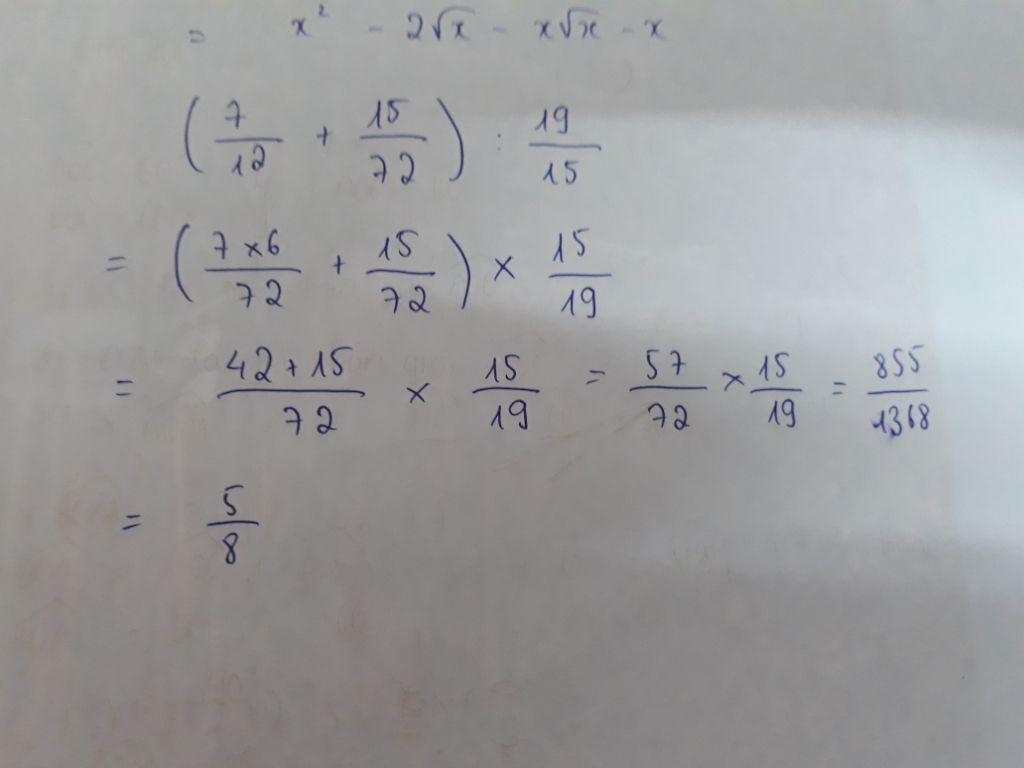 = x² - 2√x - x√x - x
(7/12 + 15/72) : 19/15
= (7×6/72 + 15/72) × 15/19
= 42+15/72 × 15/19 = 57/72 × 15/19 = 855/1368
= 5/8